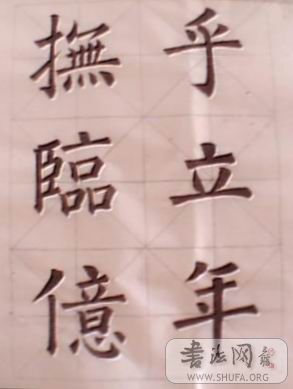 乎立年
撫臨億
书法网
WWW.SHUFA.ORG